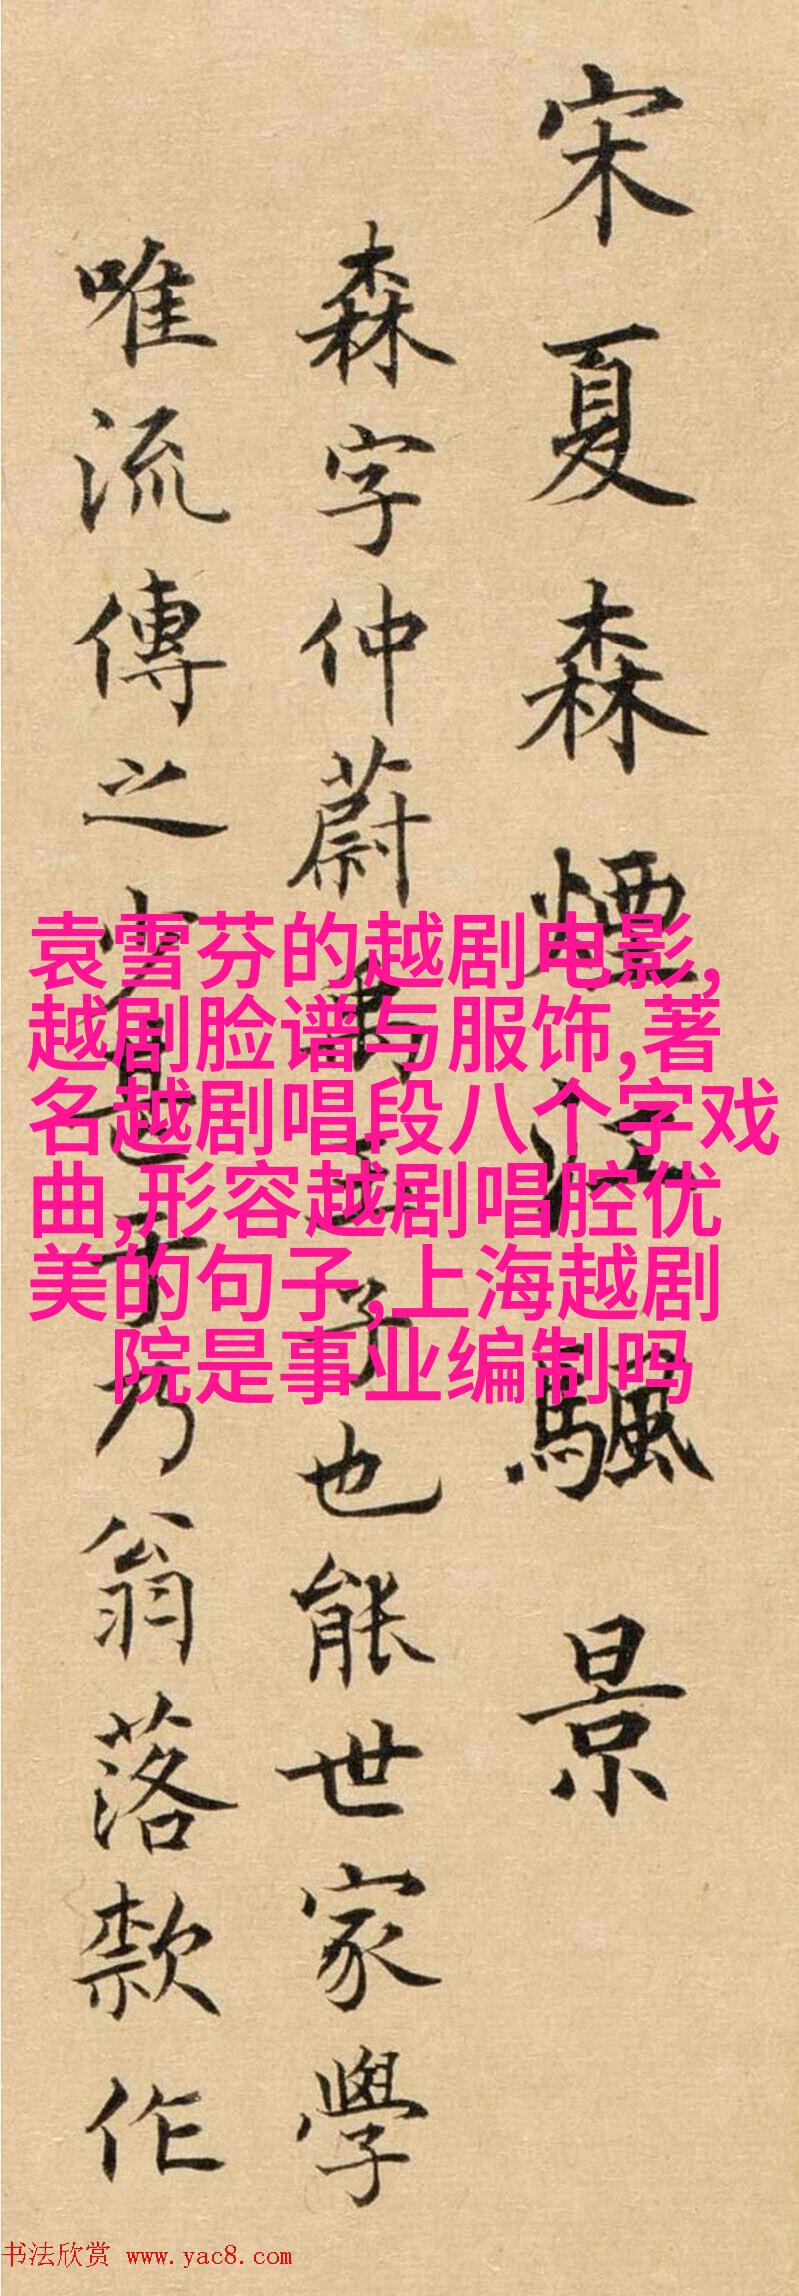 宋夏森煙江颿景
森字仲蔚禹玉子也能世家學
唯流傳之少是子乃翁落款作
袁雪芬的越剧电影,
越剧脸谱与服饰,著
名越剧唱段八个字戏
曲,形容越剧唱腔优
美的句子,上海越剧
院是事业编制吗
书法欣赏 www.yac8.com